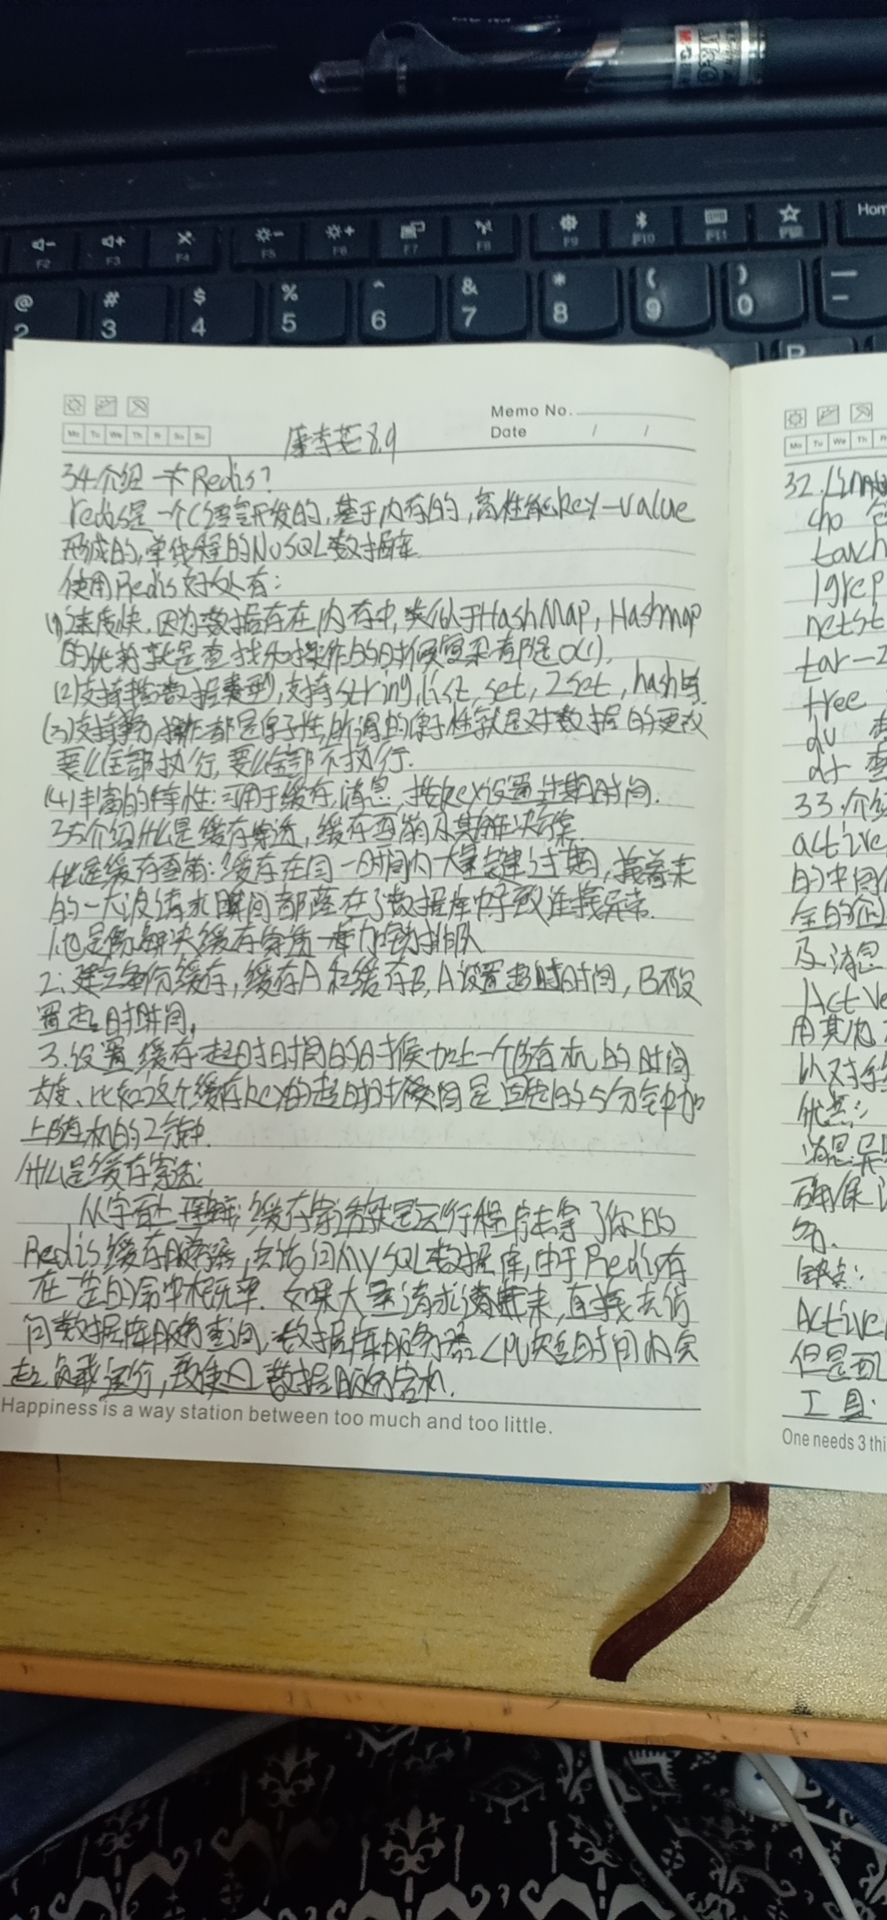 M&G
F2 F3 F4 F5 F6 F7 F8 F9 F10 F11 Hom
@ # $ % ^ & * ( ) —
2 3 4 5 6 7 8 9 0 -
Memo No.
Mo Tu We Th Fr Sa Su
Date / /
8.9
34.介绍一下Redis?
redis是一个C语言开发的,基于内存的,高性能key-value
形成的,单线程的NoSQL数据库.
使用Redis好处有:
(1)速度快,因为数据存在内存中,类似于HashMap, Hashmap
的优势就是查找和操作的时候复杂都是O(1).
(2)支持数据类型,支持string,list,set,Zset,hash等.
(3)支持事务,操作都是原子性,所谓的原子性就是对数据的更改
要么全部执行,要么全部不执行.
(4)丰富的特性:可用于缓存,消息,按key设置过期时间.
35介绍什么是缓存穿透,缓存雪崩及其解决方案.
什么是缓存雪崩:缓存在同一时间内大量键过期,接着来
的一大波请求瞬间都落在了数据库中导致连接异常.
1.也是像解决缓存穿透一样加锁排队
2:建立备份缓存,缓存A和缓存B,A设置超时时间,B不设
置超时时间.
3.设置缓存超时时间的时候加上一个随机的时间
长度、比如这个缓存key的超时时间是固定的5分钟加
上随机的2分钟.
什么是缓存穿透:
从字面上理解:缓存穿透就是运行程序去穿了你的
Redis缓存服务器,去访问mysQL数据库,由于Redis有
在一定的命中概率.如果大量请求进来,直接去访
问数据库服务查询,数据库服务器CPU短时间内突
起负载运行,致使数据服务宕机.
Happiness is a way station between too much and too little.
Mo Tu We Th F
32.
tar
grep
netst
tar-Z
tree
du 查
df 查
33.介绍
active
的中间
及消息
Active
用其他
优点:
消息异
确保
务.
缺点:
Active
但是
工具.
One needs 3 thi